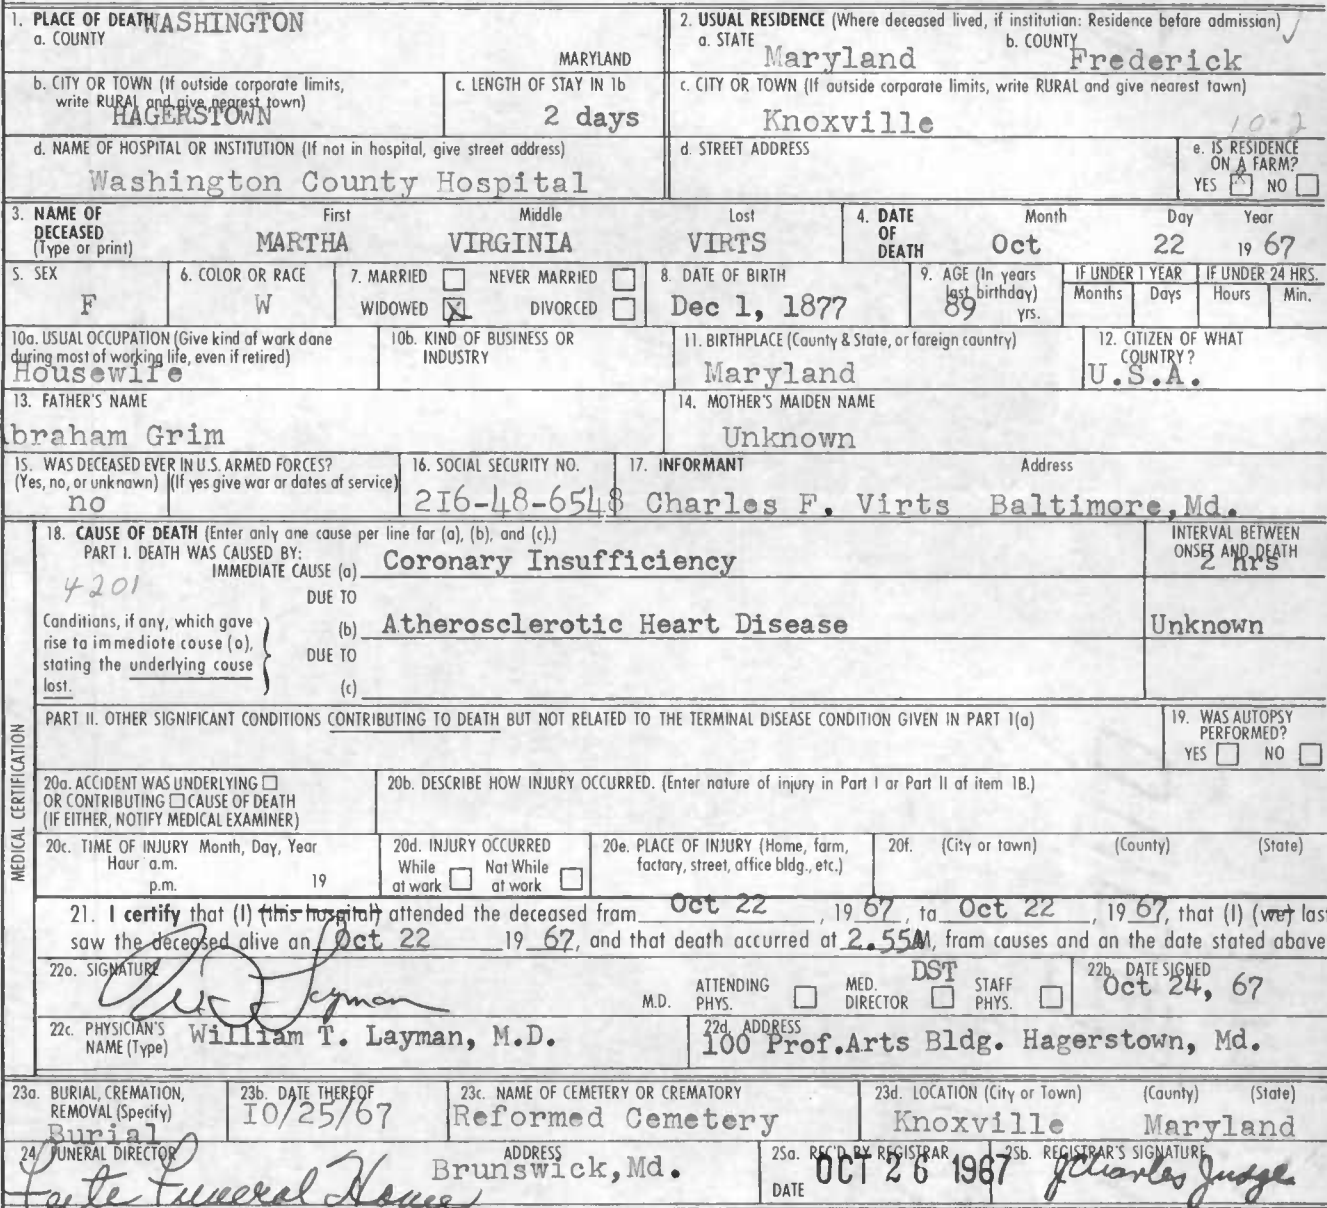 1. PLACE OF DEATH WASHINGTON
a. COUNTY
MARYLAND
2. USUAL RESIDENCE (Where deceased lived, if institution: Residence before admission)
a. STATE Maryland b. COUNTY Frederick
b. CITY OR TOWN (If outside corporate limits, write RURAL and give nearest town)
HAGERSTOWN
c. LENGTH OF STAY IN 1b
2 days
c. CITY OR TOWN (If outside corporate limits, write RURAL and give nearest town)
Knoxville
10-2
d. NAME OF HOSPITAL OR INSTITUTION (If not in hospital, give street address)
Washington County Hospital
d. STREET ADDRESS
e. IS RESIDENCE ON A FARM?
YES X NO
3. NAME OF DECEASED (Type or print)
First Middle Last
MARTHA VIRGINIA VIRTS
4. DATE OF DEATH
Month Day Year
Oct 22 19 67
5. SEX
F
6. COLOR OR RACE
W
7. MARRIED NEVER MARRIED
WIDOWED X DIVORCED
8. DATE OF BIRTH
Dec 1, 1877
9. AGE (In years last birthday)
89 yrs.
IF UNDER 1 YEAR
Months Days
IF UNDER 24 HRS.
Hours Min.
10a. USUAL OCCUPATION (Give kind of work done during most of working life, even if retired)
Housewife
10b. KIND OF BUSINESS OR INDUSTRY
11. BIRTHPLACE (County & State, or foreign country)
Maryland
12. CITIZEN OF WHAT COUNTRY?
U.S.A.
13. FATHER'S NAME
braham Grim
14. MOTHER'S MAIDEN NAME
Unknown
15. WAS DECEASED EVER IN U.S. ARMED FORCES?
(Yes, no, or unknown) (If yes give war or dates of service)
no
16. SOCIAL SECURITY NO.
216-48-6548
17. INFORMANT Address
Charles F. Virts Baltimore,Md.
MEDICAL CERTIFICATION
18. CAUSE OF DEATH (Enter only one cause per line for (a), (b), and (c).)
PART I. DEATH WAS CAUSED BY:
IMMEDIATE CAUSE (a) Coronary Insufficiency
INTERVAL BETWEEN ONSET AND DEATH
2 hrs
4201
DUE TO
Conditions, if any, which gave rise to immediate cause (a), stating the underlying cause last.
(b) Atherosclerotic Heart Disease Unknown
DUE TO
(c)
PART II. OTHER SIGNIFICANT CONDITIONS CONTRIBUTING TO DEATH BUT NOT RELATED TO THE TERMINAL DISEASE CONDITION GIVEN IN PART 1(a)
19. WAS AUTOPSY PERFORMED?
YES NO
20a. ACCIDENT WAS UNDERLYING
OR CONTRIBUTING CAUSE OF DEATH
(IF EITHER, NOTIFY MEDICAL EXAMINER)
20b. DESCRIBE HOW INJURY OCCURRED. (Enter nature of injury in Part I or Part II of item 18.)
20c. TIME OF INJURY Month, Day, Year
Hour a.m.
p.m. 19
20d. INJURY OCCURRED
While at work Not While at work
20e. PLACE OF INJURY (Home, farm, factory, street, office bldg., etc.)
20f. (City or town) (County) (State)
21. I certify that (I) (this hospital) attended the deceased from Oct 22, 19 67, to Oct 22, 19 67, that (I) (we) las
saw the deceased alive on Oct 22 19 67, and that death occurred at 2.55AM, from causes and on the date stated above
22a. SIGNATURE
Wm T Layman
M.D. ATTENDING PHYS. MED. DIRECTOR STAFF PHYS.
DST
22b. DATE SIGNED
Oct 24, 67
22c. PHYSICIAN'S NAME (Type)
William T. Layman, M.D.
22d. ADDRESS
100 Prof.Arts Bldg. Hagerstown, Md.
23a. BURIAL, CREMATION, REMOVAL (Specify)
Burial
23b. DATE THEREOF
10/25/67
23c. NAME OF CEMETERY OR CREMATORY
Reformed Cemetery
23d. LOCATION (City or Town) (County) (State)
Knoxville Maryland
24. FUNERAL DIRECTOR
Feete Funeral Home
ADDRESS
Brunswick,Md.
25a. REC'D BY REGISTRAR
DATE OCT 26 1967
25b. REGISTRAR'S SIGNATURE
J Charles Judge